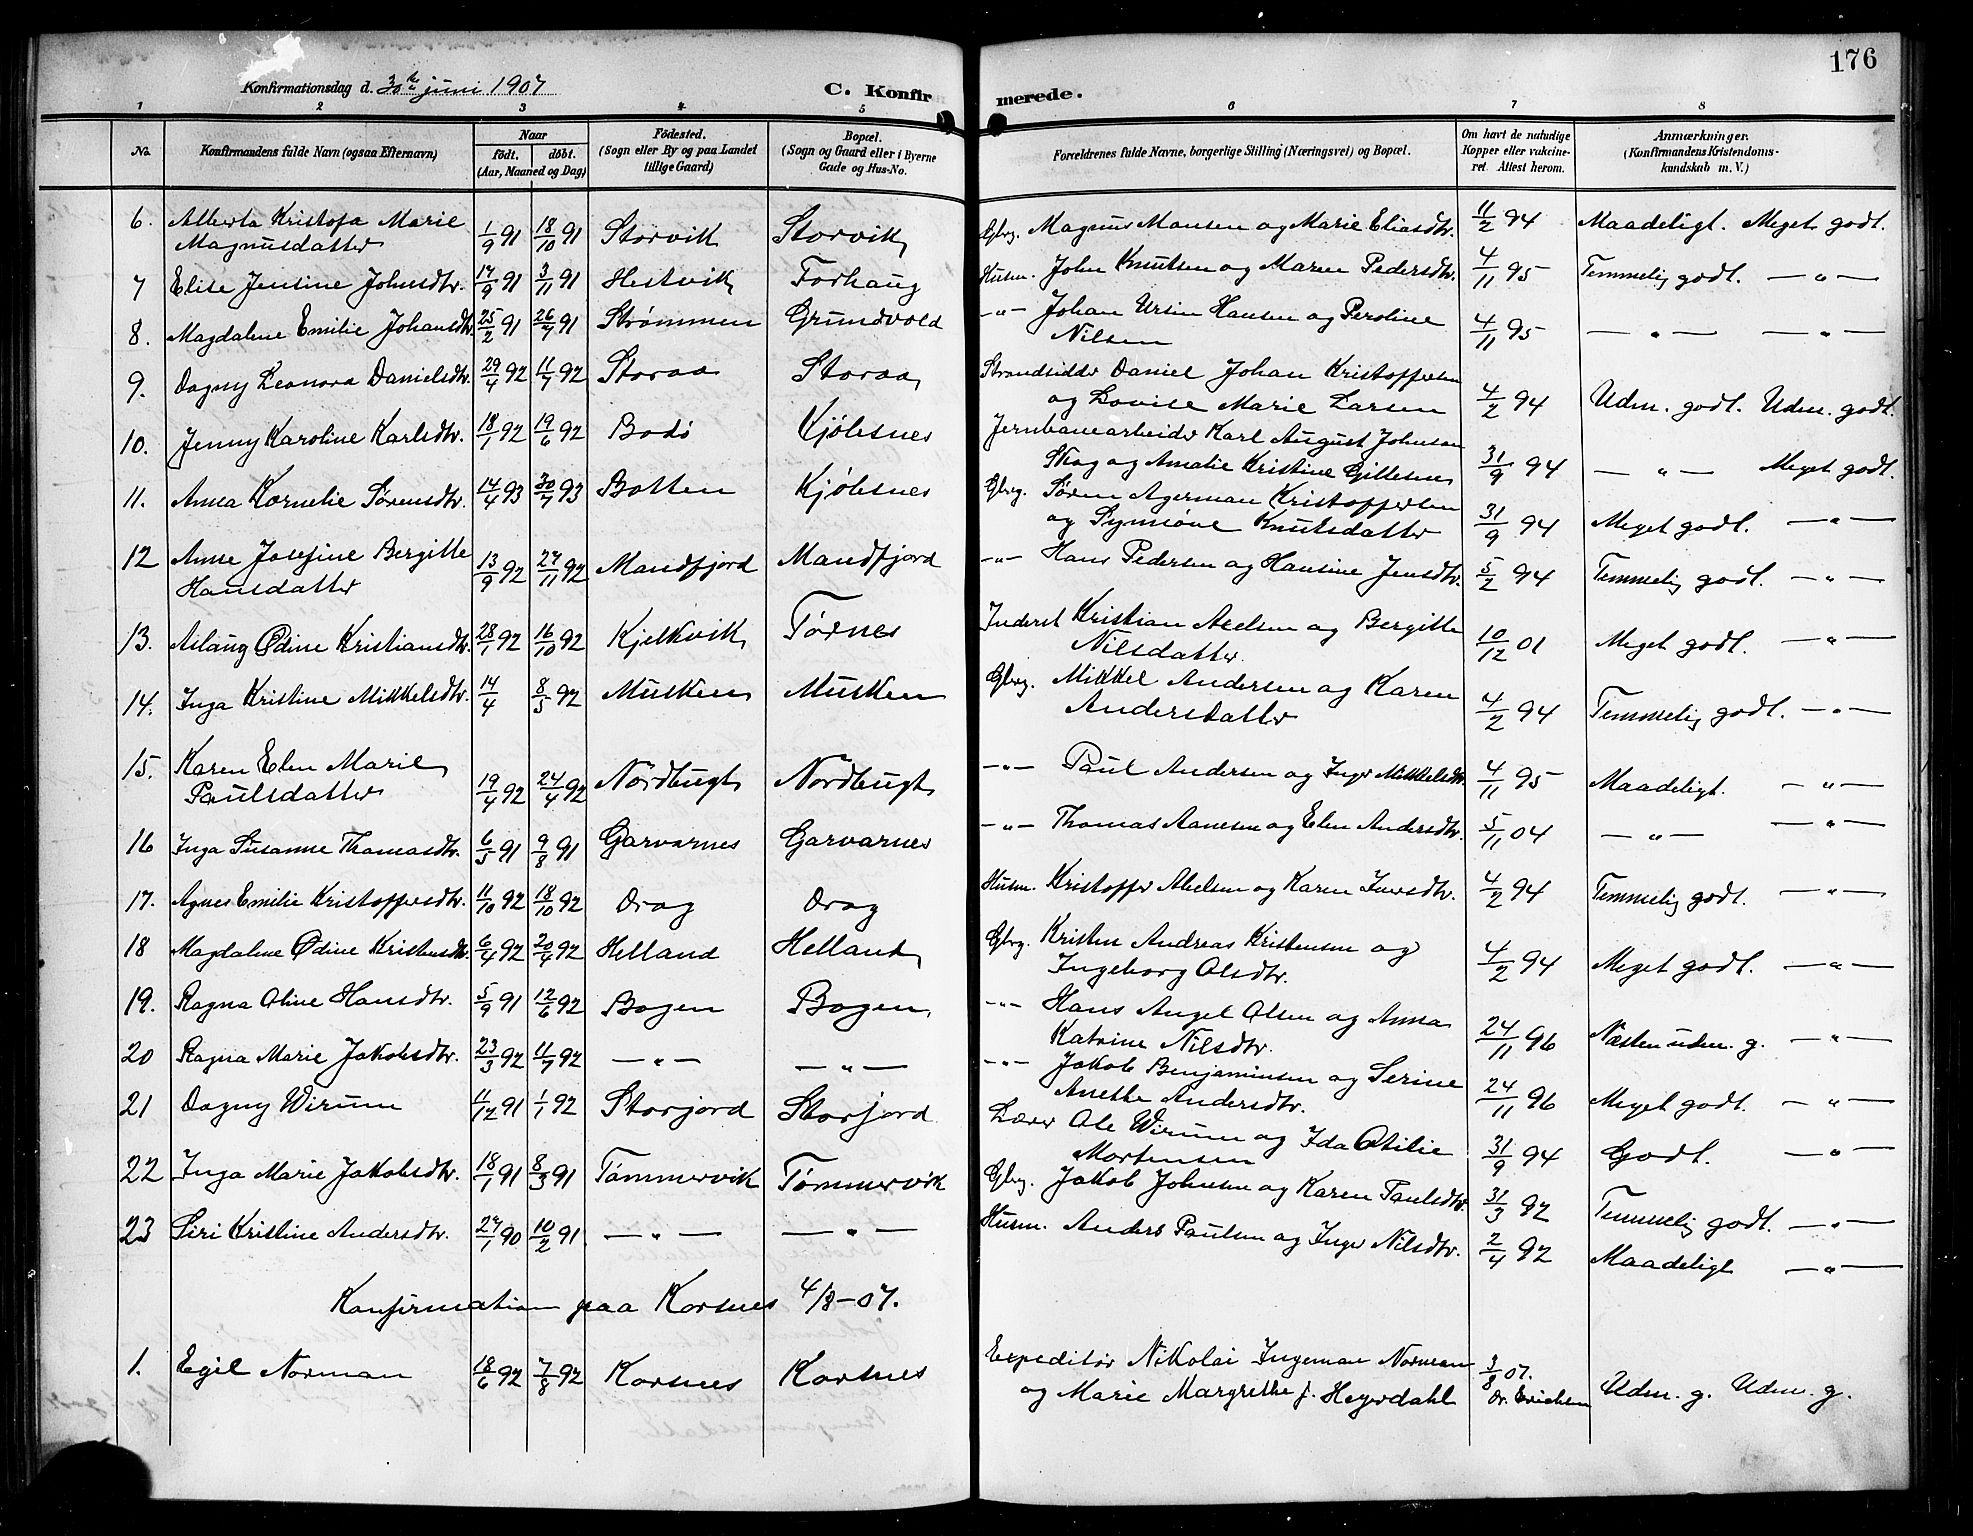 176
Konfirmationsdag d. 30te juni 1907
C. Konfirmerede.
1 2 3 4 5 6 7 8
No. Konfirmandens fulde Navn (ogsaa Efternavn) Naar født. døbt. (Aar, Maaned og Dag) Fødested. (Sogn eller By og paa Landet tillige Gaard) Bopæl. (Sogn og Gaard eller i Byerne Gade og Hus-No. Forældrenes fulde Navne, borgerlige Stilling (Næringsvei) og Bopæl. Om havt de naturlige Kopper eller vakcineret. Attest herom. Anmærkninger. (Konfirmandens Kristendomskundskab m. V.)
6. Alberta Kristofa Marie Magnusdatter 1/9 91 18/10 91 Storvik Storvik Gbrg. Magnus Monsen og Marie Eliasdtr. 11/2 94 Maadeligt. Meget godt.
7 Elise Jensine Johnsdtr. 17/9 91 3/11 91 Hestvik Forhaug Husm. John Knutsen og Maren Pedersdtr. 4/11 95 Temmelig godt. — " —
8. Magdalene Emilie Johansdtr. 25/2 91 26/7 91 Strømmen Grundvold — " — Johan Ursin Hansen og Peroline Nilsen 4/11 95 — " — — " —
9. Dagny Leonora Danielsdtr. 29/4 92 11/7 92 Storaa Storaa Strandsidder Daniel Johan Kristoffersen og Lovise Marie Larsen 4/2 94 Udm. godt. Udm. godt.
10. Jenny Karoline Karlsdtr. 18/1 92 19/6 92 Bodø Kjølesnes Jernbanearbeider Karl August Johnson Skog og Amalie Kristine Gillesnes 31/9 94 — " — Meget godt.
11. Anna Kornelie Sørensdtr. 14/4 93 30/7 93 Botten Kjølesnes Gbrg. Søren Agerman Kristoffersen og Synnøve Knutsdatter 31/9 94 Meget godt. — " —
12 Anne Josefine Bergitte Hansdatter 13/9 92 27/11 92 Mandfjord Mandfjord — " — Hans Pedersen og Hansine Jensdtr. 5/2 94 Temmelig godt. — " —
13. Aslaug Ødine Kristiansdtr. 28/1 92 16/10 92 Kjelkvik Tørnes Inderst Kristian Axelsen og Bergitte Nilsdatter. 10/12 01 Meget godt. — " —
14. Inga Kristine Mikkelsdtr. 14/4 8/5 92 Musken Musken Gbrg. Mikkel Andersen og Karen Andersdatter 4/2 94 Temmelig godt. — " —
15. Karen Elen Marie Paulsdatter 19/4 92 24/4 92 Nordbugt Nordbugt — " — Paul Andersen og Inger Mikkelsdtr. 4/11 95 Maadeligt. — " —
16 Inga Susanne Thomasdtr. 6/5 91 9/8 91 Garvarnes Garvarnes — " — Thomas Aanesen og Elen Andersdtr. 5/11 04 — " — — " —
17. Agnes Emilie Kristoffersdtr. 11/10 92 18/10 92 Drag Drag Husm. Kristoffer Abelsen og Karen Iversdtr. 4/2 94 Temmelig godt. — " —
18 Magdalene Ødine Kristensdtr. 6/4 92 20/4 92 Helland Helland Gbrg. Kristen Andreas Kristensen og Ingeborg Olsdtr. 4/2 94 Meget godt. — " —
19. Ragna Oline Hansdtr. 5/9 91 12/6 92 Bogen Bogen — " — Hans Angel Olsen og Anna Katrine Nilsdtr. 24/11 96 Næsten udm. g. — " —
20 Ragna Marie Jakobsdtr. 23/3 92 11/7 92 — " — — " — — " — Jakob Benjaminsen og Serine Anethe Andersdtr. 24/11 96 Meget godt. — " —
21 Dagny Wirum 11/12 91 1/1 92 Storjord Storjord Lærer Ole Wirum og Ida Otilie Mortensen 31/9 94 Godt. — " —
22 Inga Marie Jakobsdtr. 18/1 91 8/3 91 Tømmervik Tømmervik Gbrg. Jakob Johnsen og Karen Paulsdtr. 31/3 92 Temmelig godt. — " —
23 Siri Kristine Andersdtr. 27/1 90 10/2 91 — " — — " — Husm. Anders Paulsen og Inger Nilsdtr. 2/4 92 Maadeligt — " —
Konfirmation paa Korsnes 4/8-07.
1. Egil Norman 18/6 92 7/8 92 Korsnes Korsnes Expeditør Nikolai Ingeman Norman og Marie Margrethe f. Heyerdahl 3/8 07. Dr. Erichsen Udm. g. Udm. g.